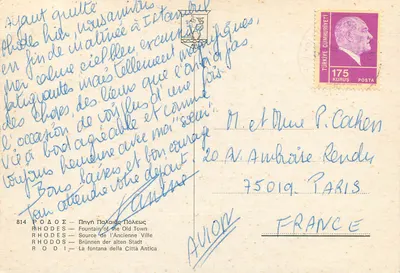 Ayant quitté
Rhodes hier, nous arrivons
en fin de matinée à Istanbul
mer calme, ciel bleu, excursions
fatigantes mais tellement magnifiques,
des choses, des lieux que l'on n'a pas
l'occasion de voir plus d'une fois.
Vie à bord agréable et comme
toujours heureuse avec moi "
Bons baisers et bon courage
attendre votre départ.
814 ΡΟΔΟΣ – Πηγή Παλαιᾶς Πόλεως
RHODES – Fountain of the Old Town
RHODES – Source de l'Ancienne Ville
RHODOS – Brünnen der alten Stadt
RODI – La fontana della Città Antica
TÜRKİYE CUMHURİYETİ
175
KURUŞ POSTA
M. et Mme P. Cahen
20 R. Ambroise Rendu
75019. PARIS
FRANCE
AVION